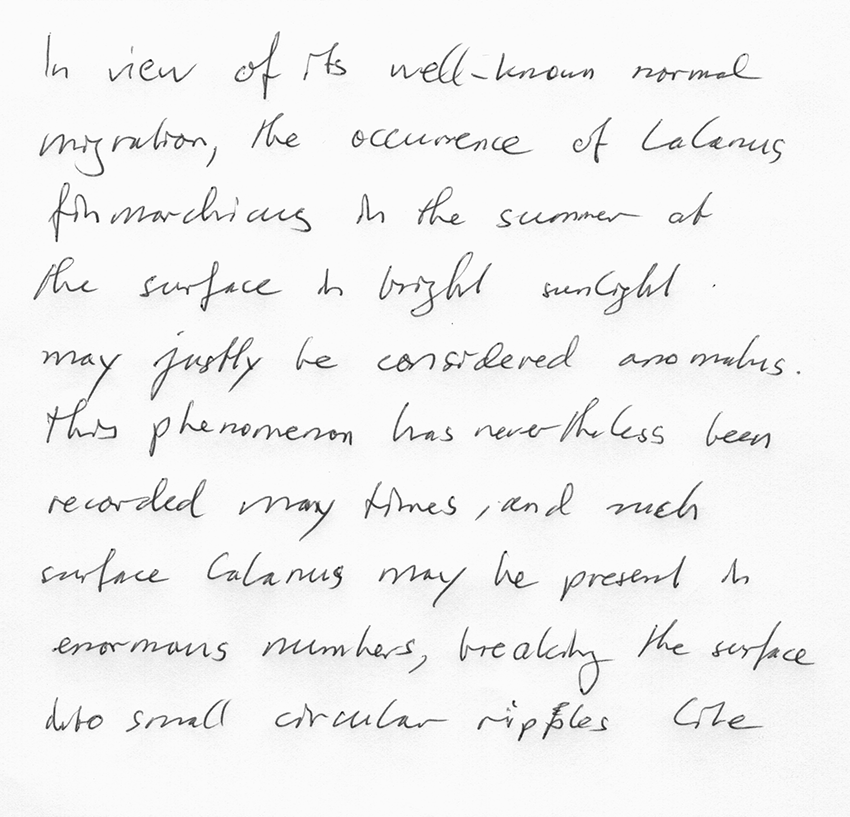 In view of its well-known normal
migration, the occurrence of Calanus
finmarchicus in the summer at
the surface in bright sunlight
may justly be considered anomalus.
This phenomenon has nevertheless been
recorded many times, and such
surface Calanus may be present in
enormous numbers, breaking the surface
into small circular ripples like